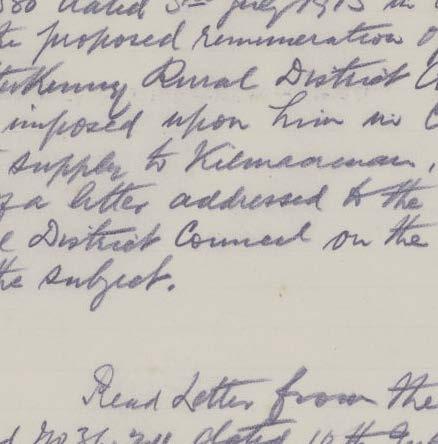 dated 3rd July 1915 in
proposed remuneration
Rural District
imposed upon him in
supply to Kilmacrenan,
of a letter addressed to the
District Council on the
the subject.
Read Letter from the
dated 10th